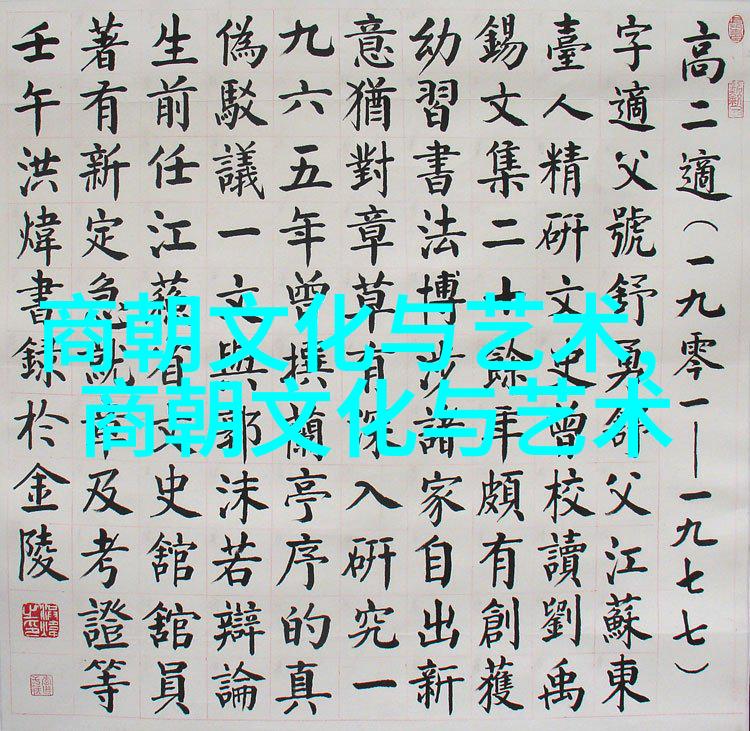 高二適（一九零一—一九七七）
字適父號舒父江蘇東
臺人精研文史曾校讀劉禹
錫文集二十餘年頗有創獲
幼習書法博涉諸家自出新
意猶對章草有深入研究一
九六五年曾撰蘭亭序的真
偽駁議一文與郭沫若辯論
生前任江蘇省文史舘舘員
著有新定急就章及考證等
壬午洪煒書錄於金陵
商朝文化与艺术,
商朝文化与艺术